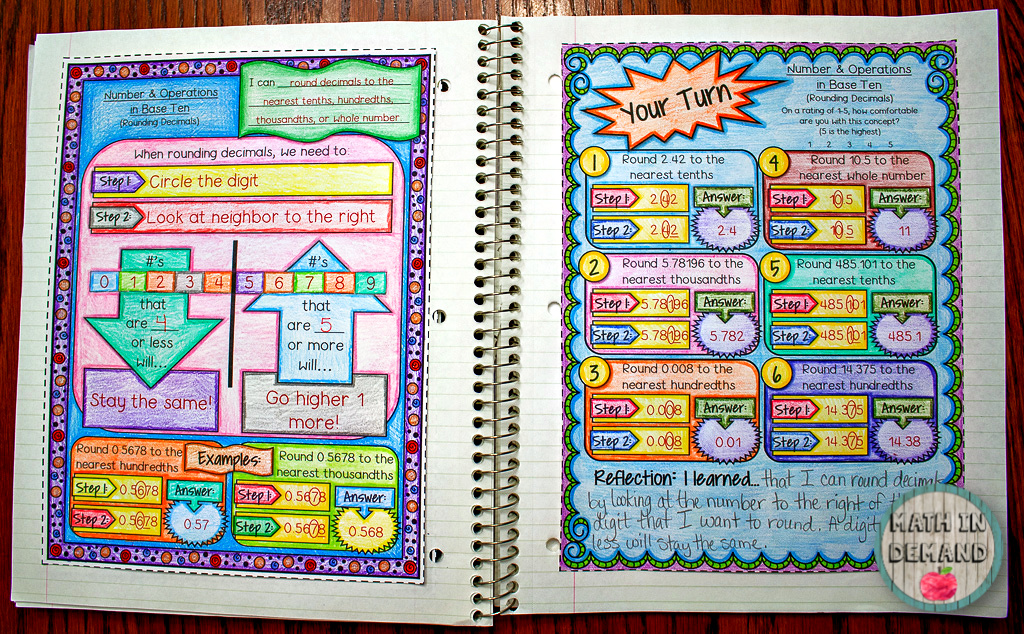 Number & Operations
in Base Ten
(Rounding Decimals)
I can round decimals to the
nearest tenths, hundredths,
thousandths, or whole number.
When rounding decimals, we need to
Step 1: Circle the digit
Step 2: Look at neighbor to the right
#'s
#'s
0 1 2 3 4 5 6 7 8 9
that
are 4
or less
will...
that
are 5
or more
will...
Stay the same!
Go higher 1
more!
Round 0.5678 to the
nearest hundredths
Examples:
Round 0.5678 to the
nearest thousandths
Step 1: 0.5678
Answer:
Step 2: 0.5678
0.57
Step 1: 0.5678
Answer:
Step 2: 0.5678
0.568
Your Turn
Number & Operations
in Base Ten
(Rounding Decimals)
On a rating of 1-5, how comfortable
are you with this concept?
(5 is the highest)
1 2 3 4 5
1 Round 2.42 to the
nearest tenths
Step 1: 2.42
Answer:
Step 2: 2.42
2.4
4 Round 10.5 to the
nearest whole number
Step 1: 10.5
Answer:
Step 2: 10.5
11
2 Round 5.78196 to the
nearest thousandths
Step 1: 5.78196
Answer:
Step 2: 5.78196
5.782
5 Round 485.101 to the
nearest tenths
Step 1: 485.101
Answer:
Step 2: 485.101
485.1
3 Round 0.008 to the
nearest hundredths
Step 1: 0.008
Answer:
Step 2: 0.008
0.01
6 Round 14.375 to the
nearest hundredths
Step 1: 14.375
Answer:
Step 2: 14.375
14.38
Reflection: I learned... that I can round decimals
by looking at the number to the right of the
digit that I want to round. A digit
less will stay the same.
MATH IN
DEMAND